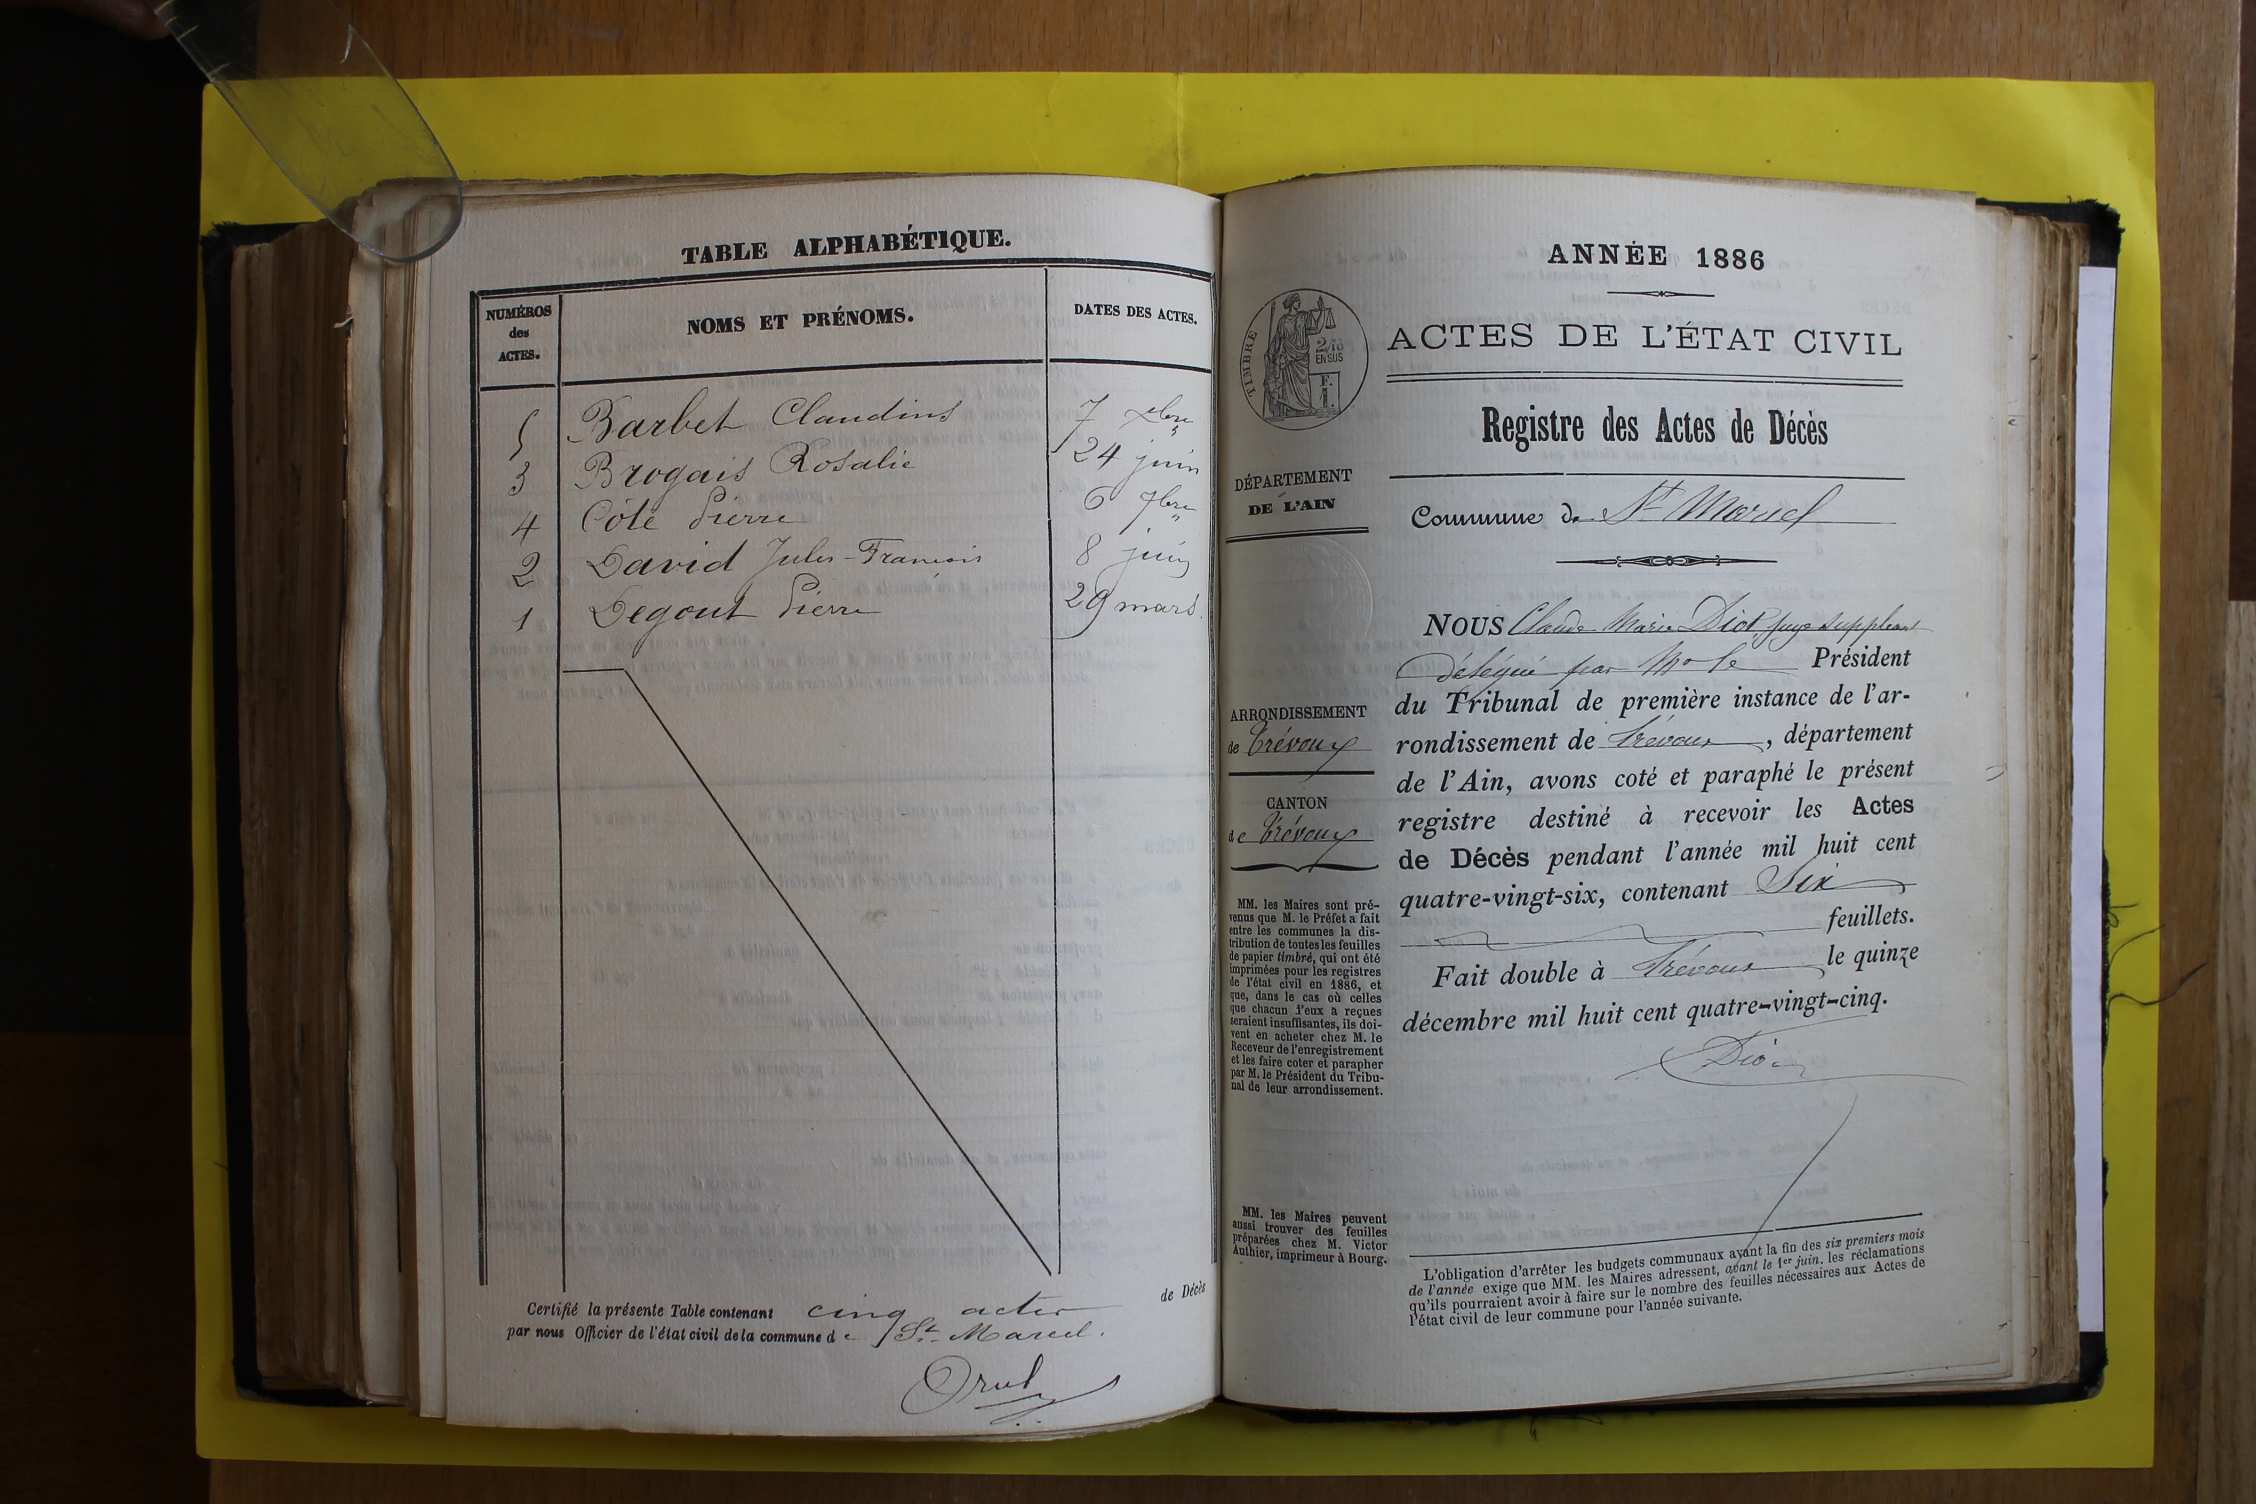 TABLE ALPHABÉTIQUE.
NUMÉROS
des
ACTES.
NOMS ET PRÉNOMS.
DATES DES ACTES.
5 Barbet Claudius 7 xbre
3 Brogais Rosalie 24 juin
4 Côte Pierre 6 7bre
2 David Jules-François 8 juin
1 Degout Pierre 29 mars
Certifié la présente Table contenant cinq actes de Décès
par nous Officier de l'état civil de la commune de St Marcel.
ANNÉE 1886
TIMBRE
2/10
EN SUS
F.
1.
ACTES DE L'ÉTAT CIVIL
Registre des Actes de Décès
DÉPARTEMENT
DE L'AIN
Commune de St Marcel
ARRONDISSEMENT
de Trévoux
CANTON
de Trévoux
MM. les Maires sont pré-
venus que M. le Préfet a fait
entre les communes la dis-
tribution de toutes les feuilles
de papier timbré, qui ont été
imprimées pour les registres
de l'état civil en 1886, et
que, dans le cas où celles
que chacun d'eux a reçues
seraient insuffisantes, ils doi-
vent en acheter chez M. le
Receveur de l'enregistrement
et les faire coter et parapher
par M. le Président du Tribu-
nal de leur arrondissement.
MM. les Maires peuvent
aussi trouver des feuilles
préparées chez M. Victor
Authier, imprimeur à Bourg.
NOUS Claude Marie Diot, Juge suppléant
délégué par Mr le Président
du Tribunal de première instance de l'ar-
rondissement de Trévoux, département
de l'Ain, avons coté et paraphé le présent
registre destiné à recevoir les Actes
de Décès pendant l'année mil huit cent
quatre-vingt-six, contenant Six
feuillets.
Fait double à Trévoux le quinze
décembre mil huit cent quatre-vingt-cinq.
Diot
L'obligation d'arrêter les budgets communaux avant la fin des six premiers mois
de l'année exige que MM. les Maires adressent, avant le 1er juin, les réclamations
qu'ils pourraient avoir à faire sur le nombre des feuilles nécessaires aux Actes de
l'état civil de leur commune pour l'année suivante.